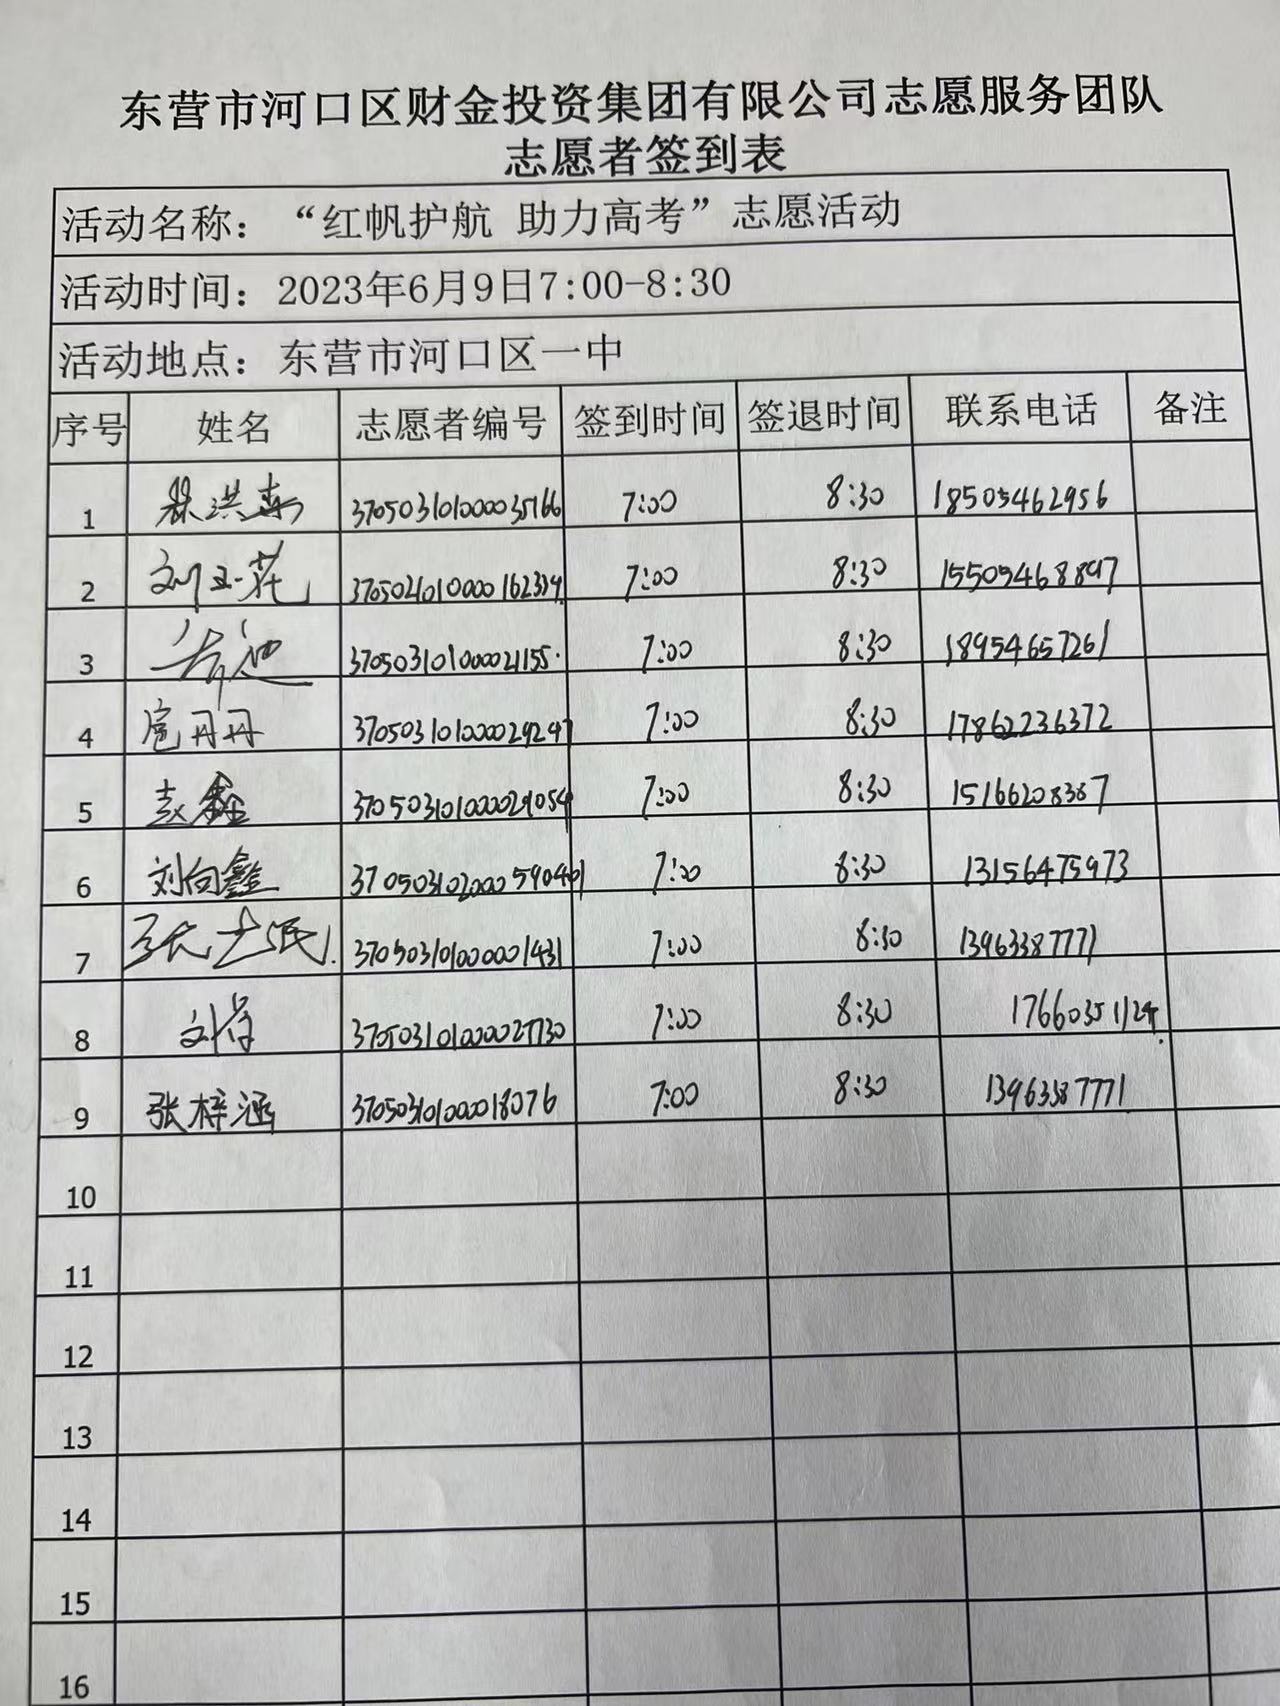 东营市河口区财金投资集团有限公司志愿服务团队
志愿者签到表
活动名称：“红帆护航 助力高考”志愿活动
活动时间：2023年6月9日7:00-8:30
活动地点：东营市河口区一中
序号 姓名 志愿者编号 签到时间 签退时间 联系电话 备注
1 370503101000035166 7:00 8:30 18505462956
2 刘玉花 7:00 8:30
3 370503101000021155 7:00 8:30 18954657261
4 扈丹丹 370503101000029297 7:00 8:30 17862236372
5 赵鑫 370503101000029054 7:00 8:30 15166208387
6 刘向鑫 7:00 8:30 13156475973
7 370503101000001431 7:00 8:30 13963387771
8 370503101000027730 7:00 8:30 17660351124
9 张梓涵 370503101000018076 7:00 8:30 13963387771
10
11
12
13
14
15
16